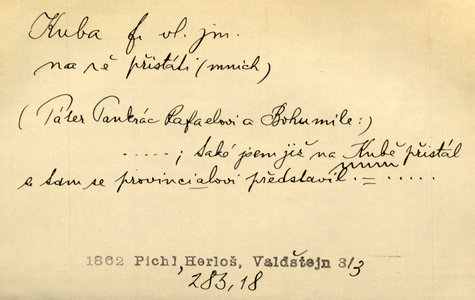 Kuba f. vl. jm.
na -ě přistáti (mnich)
(Páter Pankrác Rafaelovi a Bohumile:)
.....; také jsem již na Kubě přistál
a tam se provincialovi představil. = .....
1862 Pichl, Herloš, Valdštejn 3/3
283,18